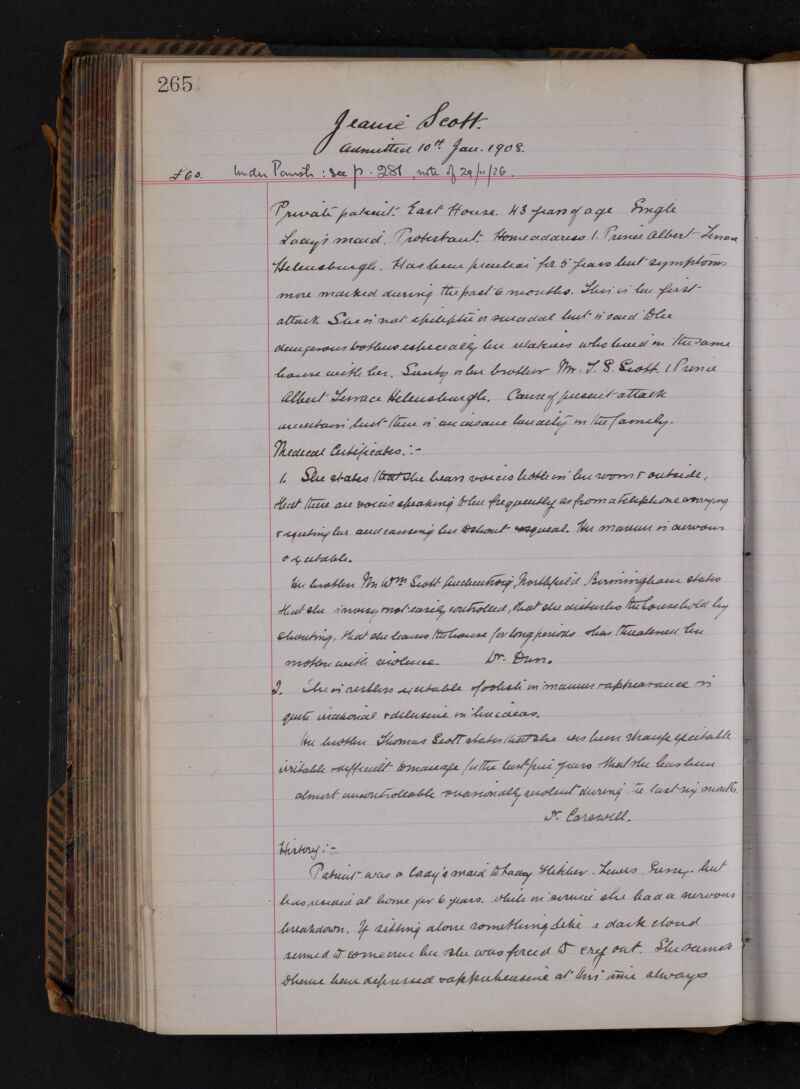 265
Jeanie Scott.
Admitted 10th Jan. 1908.
£60. Under Parish: see p. 281, note of 29/11/26.
Private patient. East House. 43 years of age Single
Lady's maid. Protestant. Home address 1. Prince Albert Terrace
Helensburgh. Has been peculiar for 5 years but symptoms
more marked during the past 6 months. This is her first
attack She is not epileptic or suicidal but is said to be
dangerous to others especially her relatives who lived in the same
house with her. Surety is her brother Mr. T. S. Scott 1 Prince
Albert Terrace Helensburgh. Cause of present attack
uncertain but there is an insane heredity in the family.
Medical Certificates:-
1. She states that she hears voices both in her room & outside,
that there are voices speaking to her frequently as from a telephone annoying
& exciting her and causing her to shout & squeal. Her manner is nervous
& excitable.
Her brother Mr Wm Scott Northfield Birmingham states
that she is noisy & not easily controlled, that she disturbs the household by
shouting, that she leaves the house for long periods & has threatened her
mother with violence. Dr. Dunn.
2. She is restless excitable & foolish in manner & appearance & is
quite irrational & delusive in her ideas.
Her brother Thomas Scott states that she has been strange excitable
irritable & difficult to manage for the last five years & that she has been
almost uncontroleable & occasionally violent during the last six months.
Dr. Carswell.
History:-
Patient was a lady's maid to Lady Lewes, but
has resided at home for 6 years. While in service she had a nervous
breakdown. If sitting alone something like a dark cloud
seemed to come over her & she was forced to cry out. She seems
to have been depressed & apprehensive at this time always